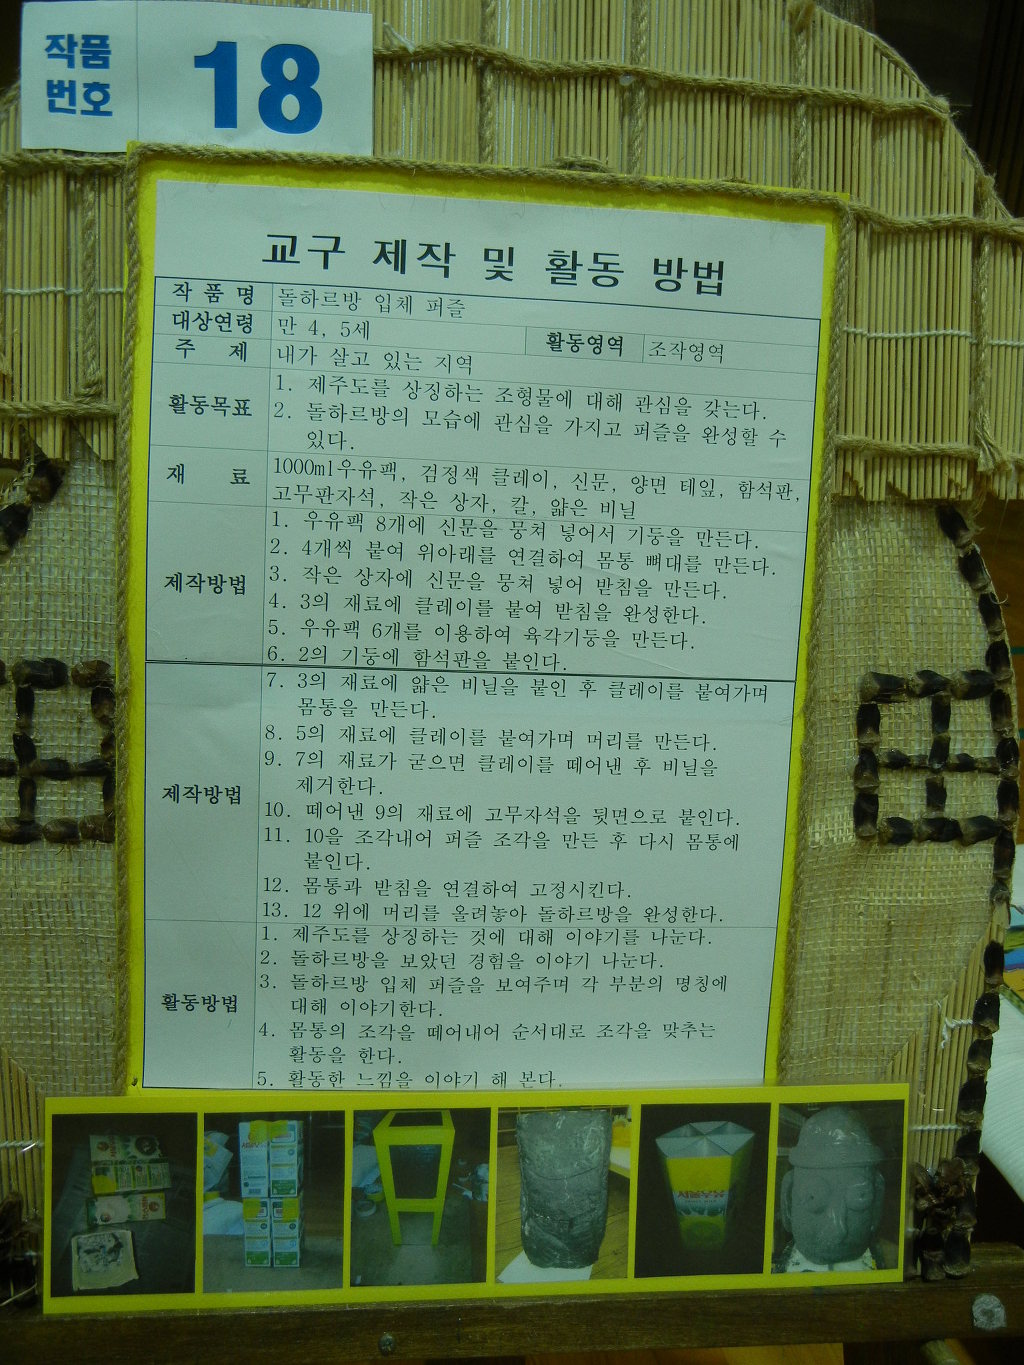 작품
번호
18
교구 제작 및 활동 방법
작 품 명 돌하르방 입체 퍼즐
대상연령 만 4, 5세 활동영역 조작영역
주 제 내가 살고 있는 지역
활동목표
1. 제주도를 상징하는 조형물에 대해 관심을 갖는다.
2. 돌하르방의 모습에 관심을 가지고 퍼즐을 완성할 수
있다.
재 료
1000ml우유팩, 검정색 클레이, 신문, 양면 테잎, 함석판,
고무판자석, 작은 상자, 칼, 얇은 비닐
제작방법
1. 우유팩 8개에 신문을 뭉쳐 넣어서 기둥을 만든다.
2. 4개씩 붙여 위아래를 연결하여 몸통 뼈대를 만든다.
3. 작은 상자에 신문을 뭉쳐 넣어 받침을 만든다.
4. 3의 재료에 클레이를 붙여 받침을 완성한다.
5. 우유팩 6개를 이용하여 육각기둥을 만든다.
6. 2의 기둥에 함석판을 붙인다.
제작방법
7. 3의 재료에 얇은 비닐을 붙인 후 클레이를 붙여가며
몸통을 만든다.
8. 5의 재료에 클레이를 붙여가며 머리를 만든다.
9. 7의 재료가 굳으면 클레이를 떼어낸 후 비닐을
제거한다.
10. 떼어낸 9의 재료에 고무자석을 뒷면으로 붙인다.
11. 10을 조각내어 퍼즐 조각을 만든 후 다시 몸통에
붙인다.
12. 몸통과 받침을 연결하여 고정시킨다.
13. 12 위에 머리를 올려놓아 돌하르방을 완성한다.
활동방법
1. 제주도를 상징하는 것에 대해 이야기를 나눈다.
2. 돌하르방을 보았던 경험을 이야기 나눈다.
3. 돌하르방 입체 퍼즐을 보여주며 각 부분의 명칭에
대해 이야기한다.
4. 몸통의 조각을 떼어내어 순서대로 조각을 맞추는
활동을 한다.
5. 활동한 느낌을 이야기 해 본다.
서울우유